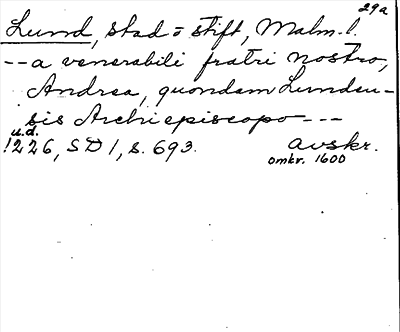 29a
Lund, stad o stift, Malm. l.
-- a venerabili fratri nostro,
Andrea, quondam Lunden-
sis Archiepiscopo ---
u.d.
1226, SD 1, s. 693. avskr.
omkr. 1600